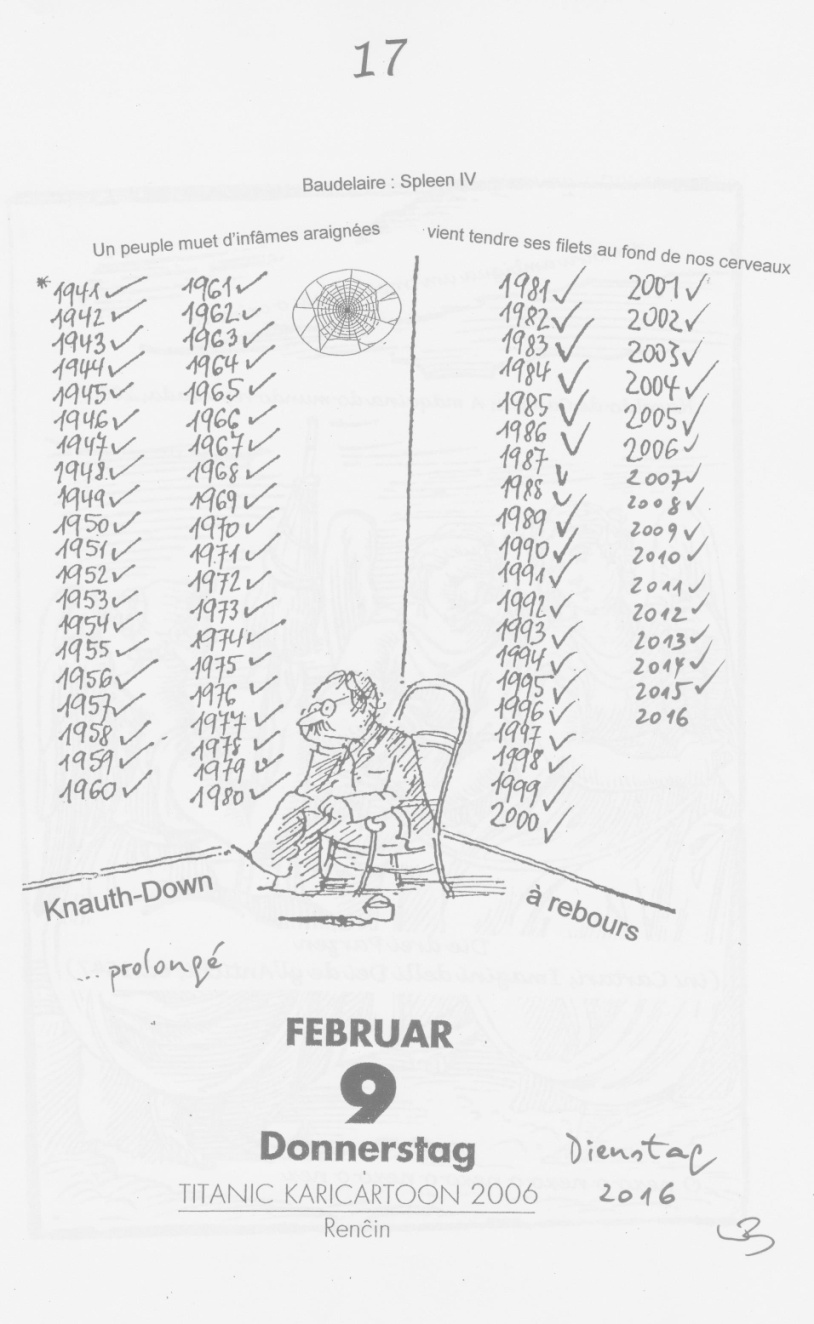 17
Baudelaire : Spleen IV
Un peuple muet d'infâmes araignées
vient tendre ses filets au fond de nos cerveaux
*1941 ✓
1942 ✓
1943 ✓
1944 ✓
1945 ✓
1946 ✓
1947 ✓
1948 ✓
1949 ✓
1950 ✓
1951 ✓
1952 ✓
1953 ✓
1954 ✓
1955 ✓
1956 ✓
1957 ✓
1958 ✓
1959 ✓
1960 ✓
1961 ✓
1962 ✓
1963 ✓
1964 ✓
1965 ✓
1966 ✓
1967 ✓
1968 ✓
1969 ✓
1970 ✓
1971 ✓
1972 ✓
1973 ✓
1974 ✓
1975 ✓
1976 ✓
1977 ✓
1978 ✓
1979 ✓
1980 ✓
1981 ✓
1982 ✓
1983 ✓
1984 ✓
1985 ✓
1986 ✓
1987 ✓
1988 ✓
1989 ✓
1990 ✓
1991 ✓
1992 ✓
1993 ✓
1994 ✓
1995 ✓
1996 ✓
1997 ✓
1998 ✓
1999 ✓
2000 ✓
2001 ✓
2002 ✓
2003 ✓
2004 ✓
2005 ✓
2006 ✓
2007 ✓
2008 ✓
2009 ✓
2010 ✓
2011 ✓
2012 ✓
2013 ✓
2014 ✓
2015 ✓
2016
Knauth-Down
à rebours
... prolongé
FEBRUAR
9
Donnerstag
Dienstag
2016
TITANIC KARICARTOON 2006
Renčin